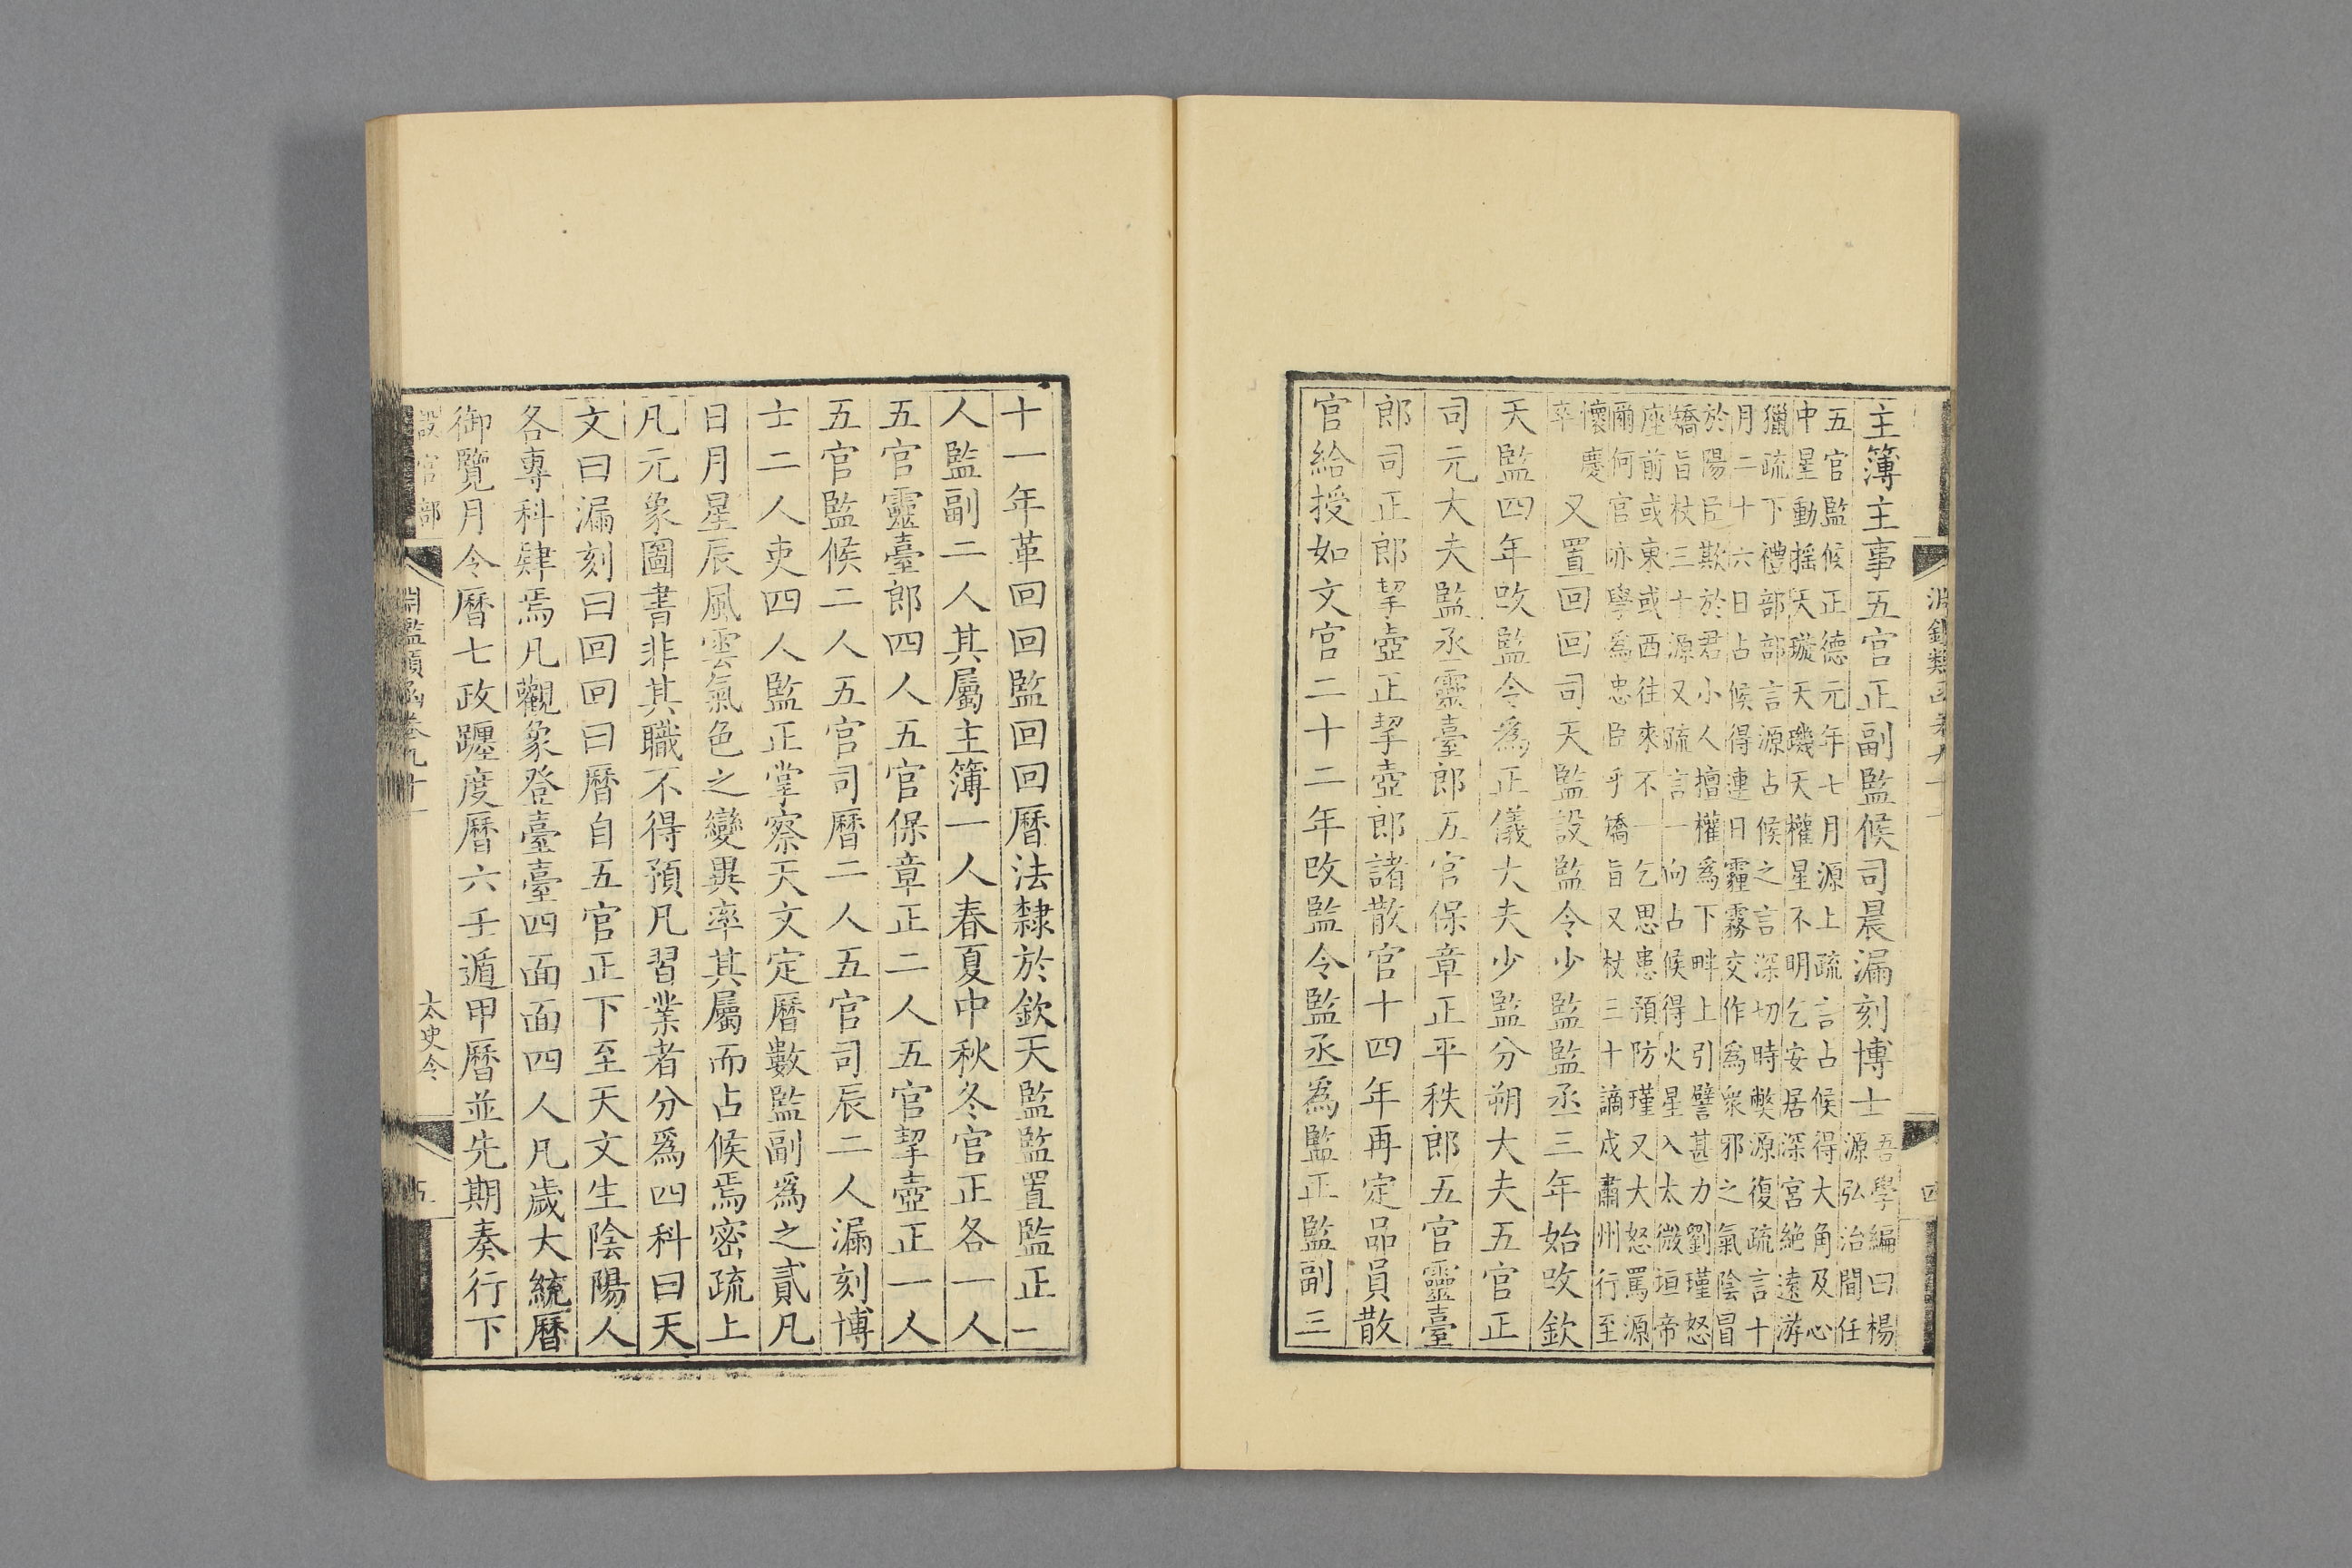 淵鑑類函卷九十一
四
主簿主事五官正副監候司晨漏刻博士
吾學編曰楊
源弘治間任
五官監候正德元年七月源上疏言占候得大角及心
中星動摇天璇天璣天權星不明乞安居深宮絶遠游
獵疏下禮部部言源占候之言深切時弊源復疏言十
月二十六日占候得連日霾霧交作爲衆邪之氣陰冒
於陽臣欺於君小人擅權爲下畔上引譬甚力劉瑾怒
矯旨杖三十源又疏言一向占候得火星入太微垣帝
座前或東或西往來不一乞思患預防瑾又大怒罵源
爾何官亦學爲忠臣乎矯旨又杖三十謫戍肅州行至
懷慶
卒
又置回回司天監設監令少監監丞三年始改欽
天監四年改監令爲正儀大夫少監分朔大夫五官正
司元大夫監丞靈臺郎五官保章正平秩郎五官靈臺
郎司正郎挈壺正挈壺郎諸散官十四年再定品員散
官給授如文官二十二年改監令監丞爲監正監副三
十一年革回回監回回曆法隸於欽天監監置監正一
人監副二人其屬主簿一人春夏中秋冬官正各一人
五官靈臺郎四人五官保章正二人五官挈壺正一人
五官監候二人五官司曆二人五官司辰二人漏刻博
士二人吏四人監正掌察天文定曆數監副爲之貳凡
日月星辰風雲氣色之變異率其屬而占候焉密疏上
凡元象圖書非其職不得預凡習業者分爲四科曰天
文曰漏刻曰回回曰曆自五官正下至天文生陰陽人
各專科肄焉凡觀象登臺臺四面面四人凡歲大統曆
御覽月令曆七政躔度曆六壬遁甲曆並先期奏行下
設官部
淵鑑類函卷九十一
太史令
五